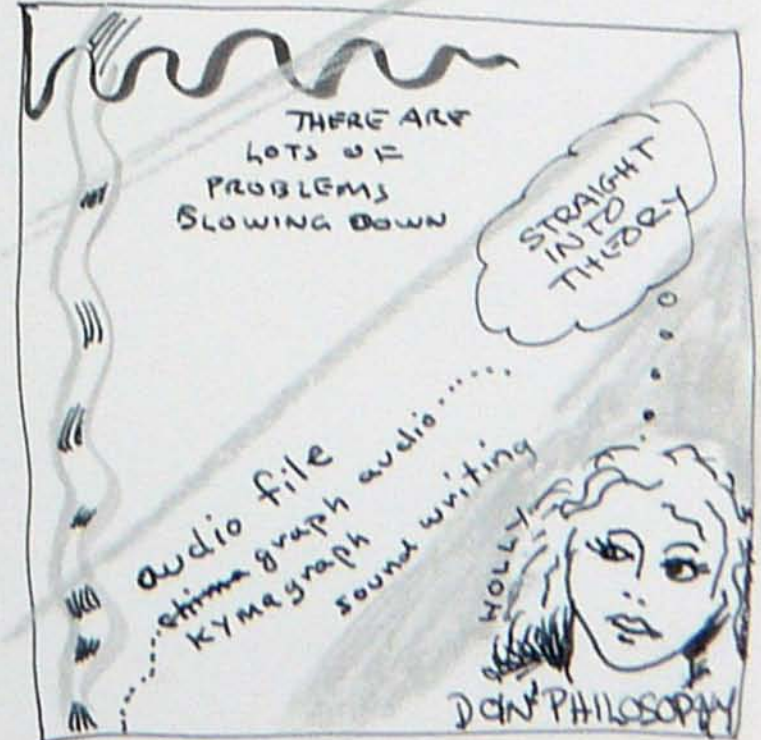 THERE ARE
LOTS OF
PROBLEMS
BLOWING DOWN
STRAIGHT
INTO
THEORY
audio file
graph audio
kymagraph
sound writing
HOLLY
DOIN' PHILOSOPHY